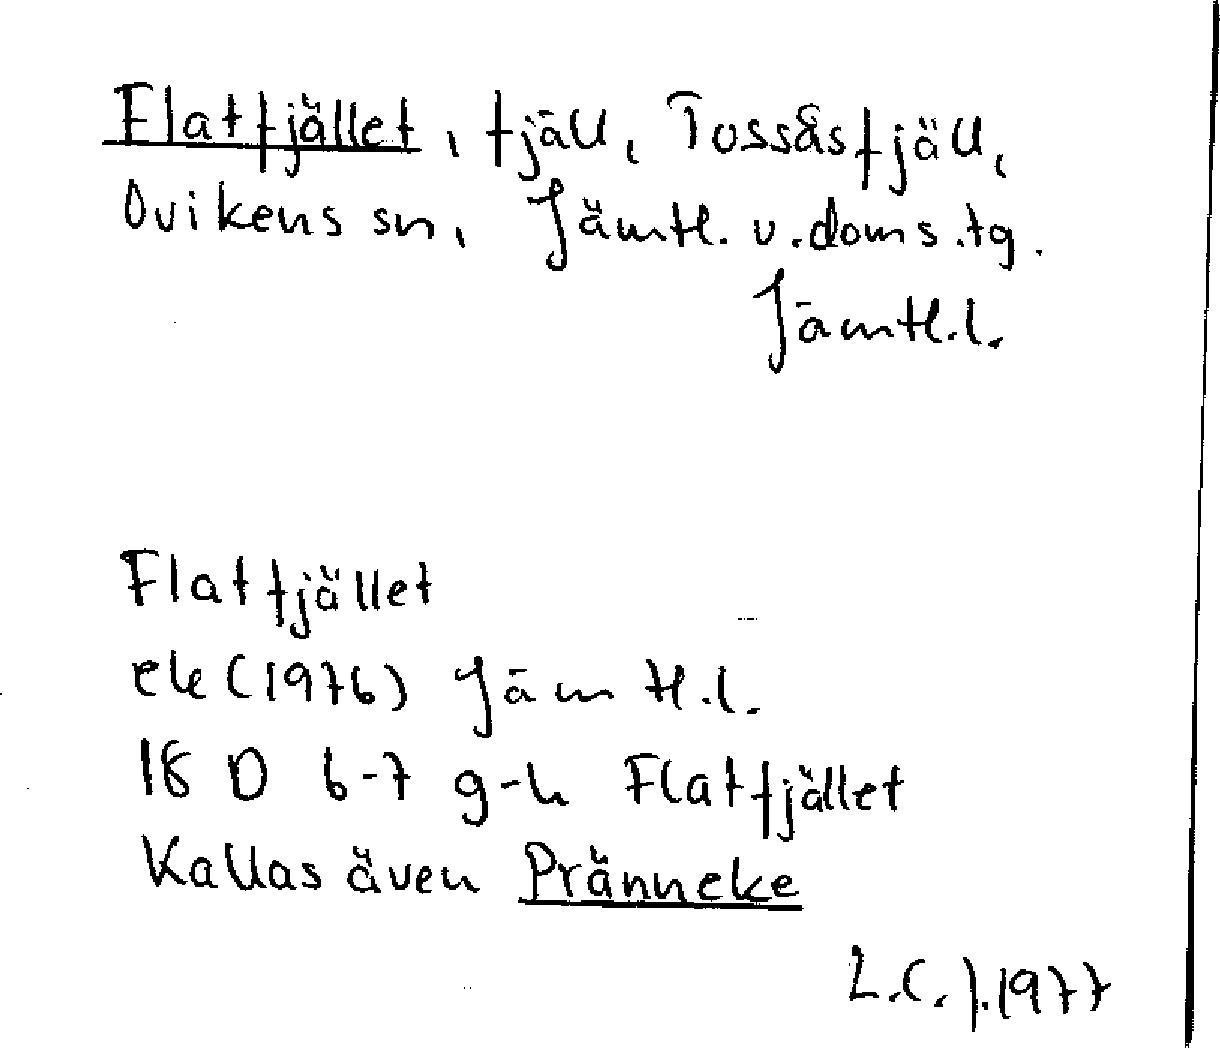 Flatfjället, fjäll, Tossåsfjäll,
Ovikens sn, Jämtl. v. doms.tg.
Jämtl.l.
Flatfjället
ek (1976) Jämtl.l.
18 D 6-7 g-h Flatfjället
Kallas även Pränneke
L.C.J. 1977